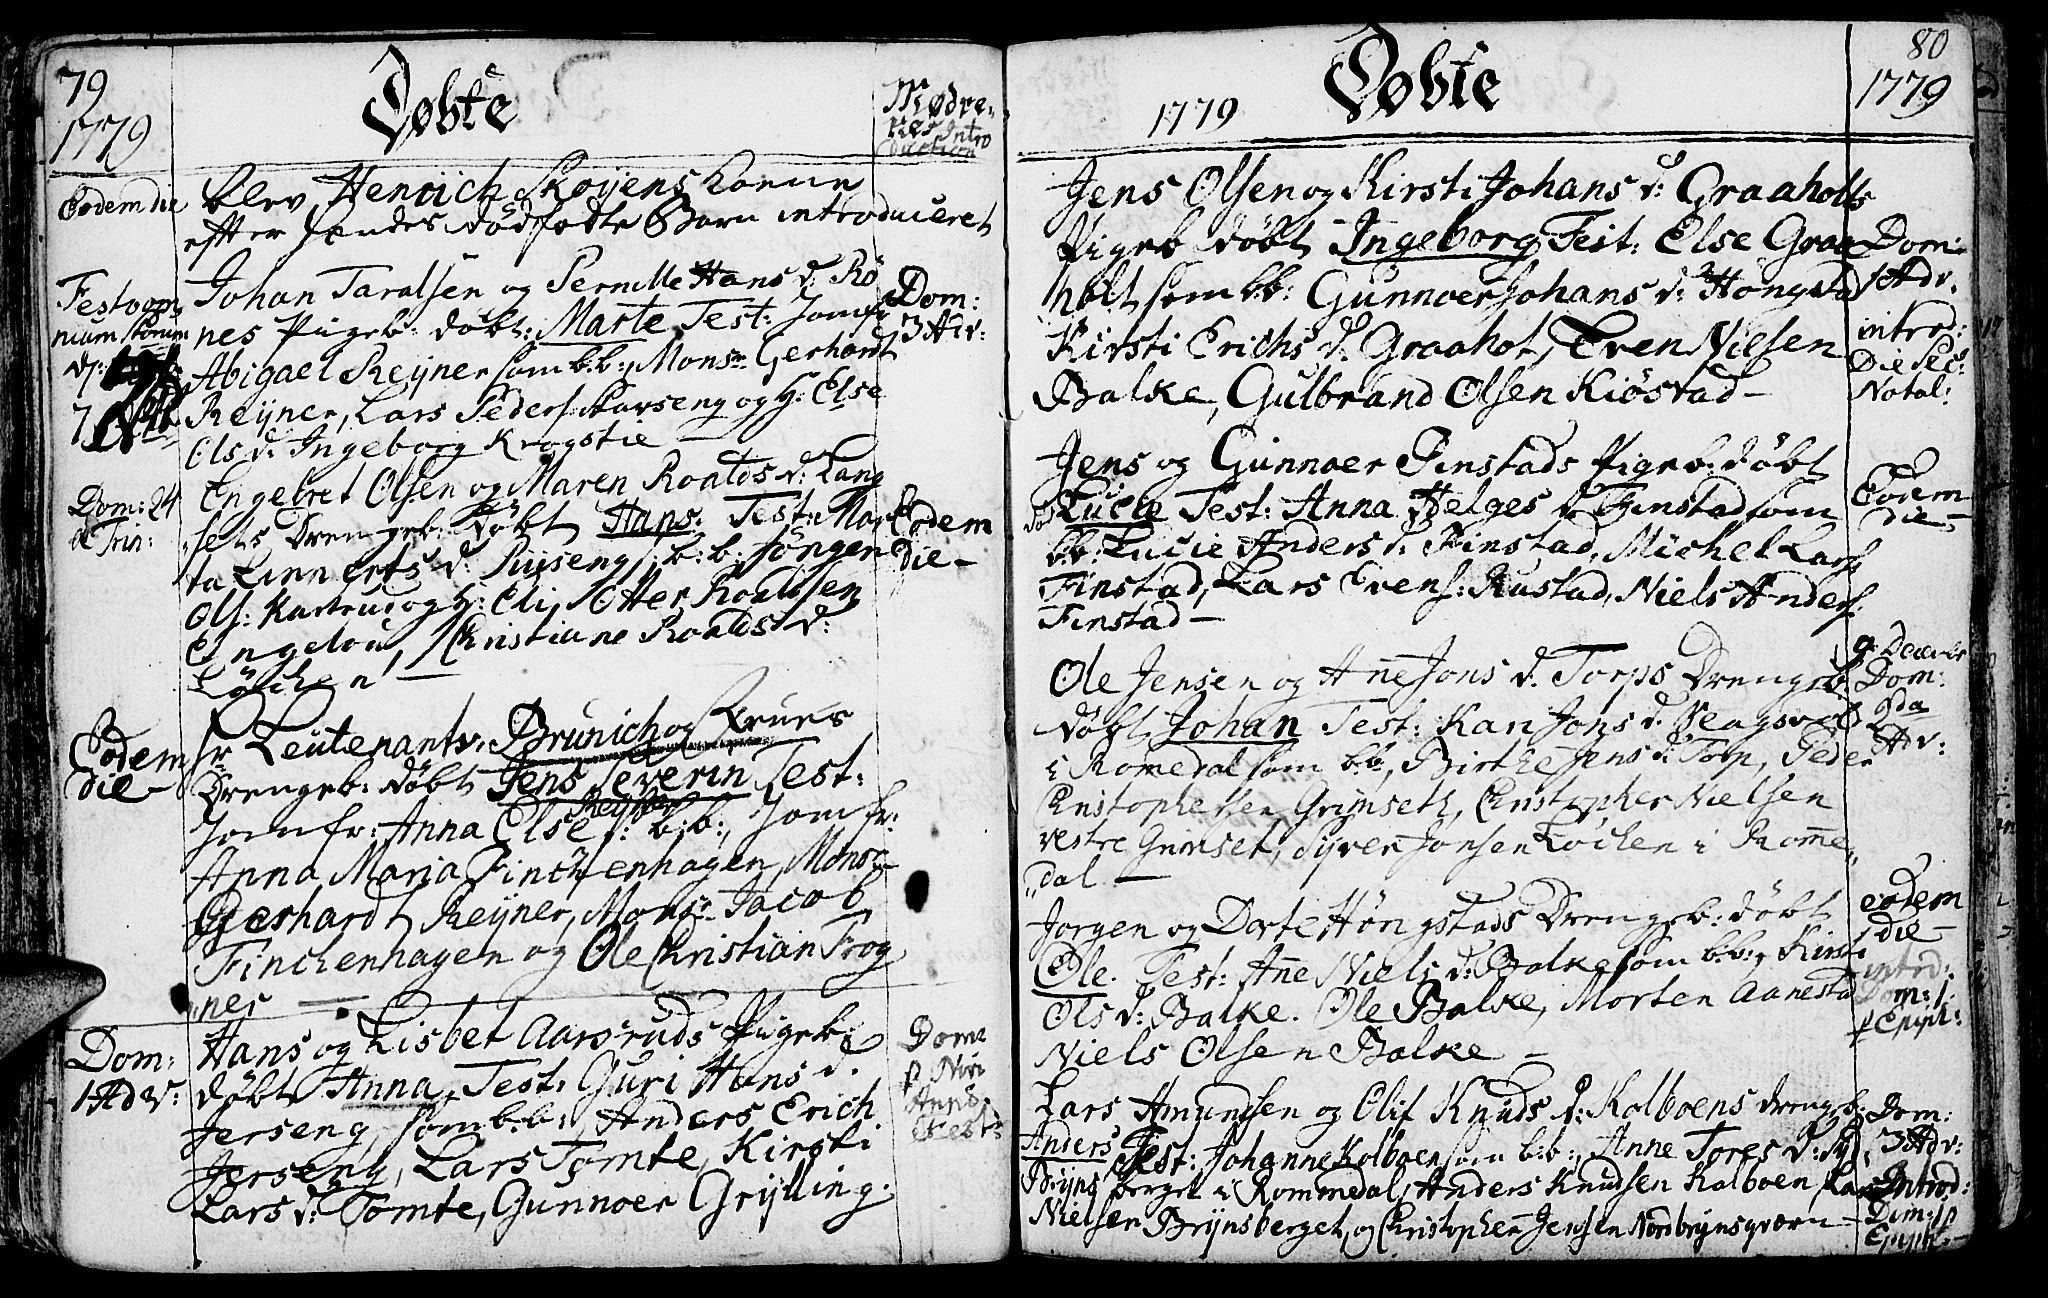 79
1779
Døbte
Mødre-
nes Intro
duction
Eodem die
blev Henrich Skøyens Koene
efter hendes dødfødte Barn introduceret
Festo om
nium Storum
Johan Taralsen og Pernille Hans d. Rø
nes Pigeb: døbt: Marte Test: Jomfr
Abigael Reyner som b.b: Monsr Gerhardt
Reyner, Lars Peders Skarseng og H: Else
Ols d. Ingeborg Krogstie
Dom:
3 Adv:
Dom: 24
p Trin:
Engebret Olsen og Maren Roalds d: Lang
sets Drengeb: døbt Hans. Test: Mar
ta Linnerts d: Riiseng, b:b: Jörgen
Ols: Kartrud og H: Eli, Otter Roaldsen
Engelou, Christiane Roalds d:
Løchen
Eodem
die
Eodem
die
Hr Leutenantr. Brunich og Frues
Drengeb: døbt Jens Severin Test:
Jomfr: Anna Else Reyner: b:b:, Jomfr:
Anna Maria Finchenhagen, Monsr
Gerhardt Reyner, Monsr Jacob
Finchenhagen og Ole Christian Frog
ner
Dom:
1 Adv:
Hans og Lisbet Aarsruds Pigeb:
døbt Anna, Test: Guri Hans d.
Jerseng, som b:b:, Anders Erich
Jerseng, Lars Tomte, Kirsti
Lars d: Tomte, Gunnoer Grylling.
Dome
p Nivi
Anni
80
1779
Døbte
1779
Jens Olsen og Kirsti Johans d: Graaholts
Pigeb døbt Ingeborg Test: Else Graa
holt som b.b: Gunnoer Johans d: Hongstad
Kirsti Erichs d: Graahot, Even Nielsen
Balke, Gulbrand Olsen Kiøstad
Dom:
1 Adv.
introd:
Die Sec:
Natal:
Jens og Gunnoer Finstads Pigeb: døbt
Lucie Test: Anna Helges d Finstad som
b.b: Lucie Anders d: Finstad, Michel Lars
Finstad, Lars Evens: Rustad, Niels Anders:
Finstad
Eodem
die
Ole Jensen og Anne Jons d. Torps Drengeb
døbt Johan Test: Kari Jons d.
i Romedal som b.b, Birthe Jens d: Torp, Peder
Christophersen Grimseth, Christopher Nielsen
vestre Grimset, Syver Jonsen Løchen i Rome
dal
Dom:
2da
Adv:
Jorgen og Dorte Hongstads Drengeb: døbt
Ole. Test: Anne Niels d: Balke som b.b:, Kirsti
Ols d: Balke. Ole Balke, Morten Aanestad
Niels Olsen Balke
eodem
die
introd:
Dom: 1
p Epiph:
Lars Amundsen og Olif Knuds d: Kolboens drengeb
Anders Test: Johanne Kolboen som b:b:, Anne Tores d:
berget i Rommedal, Anders Knudsen Kolboen, Lars
Nielsen Brynsberget, og Christopher Jensen Nordbrynsqværn
Dom:
3 Adv:
Introd:
Dom: 1 p
Epiph: